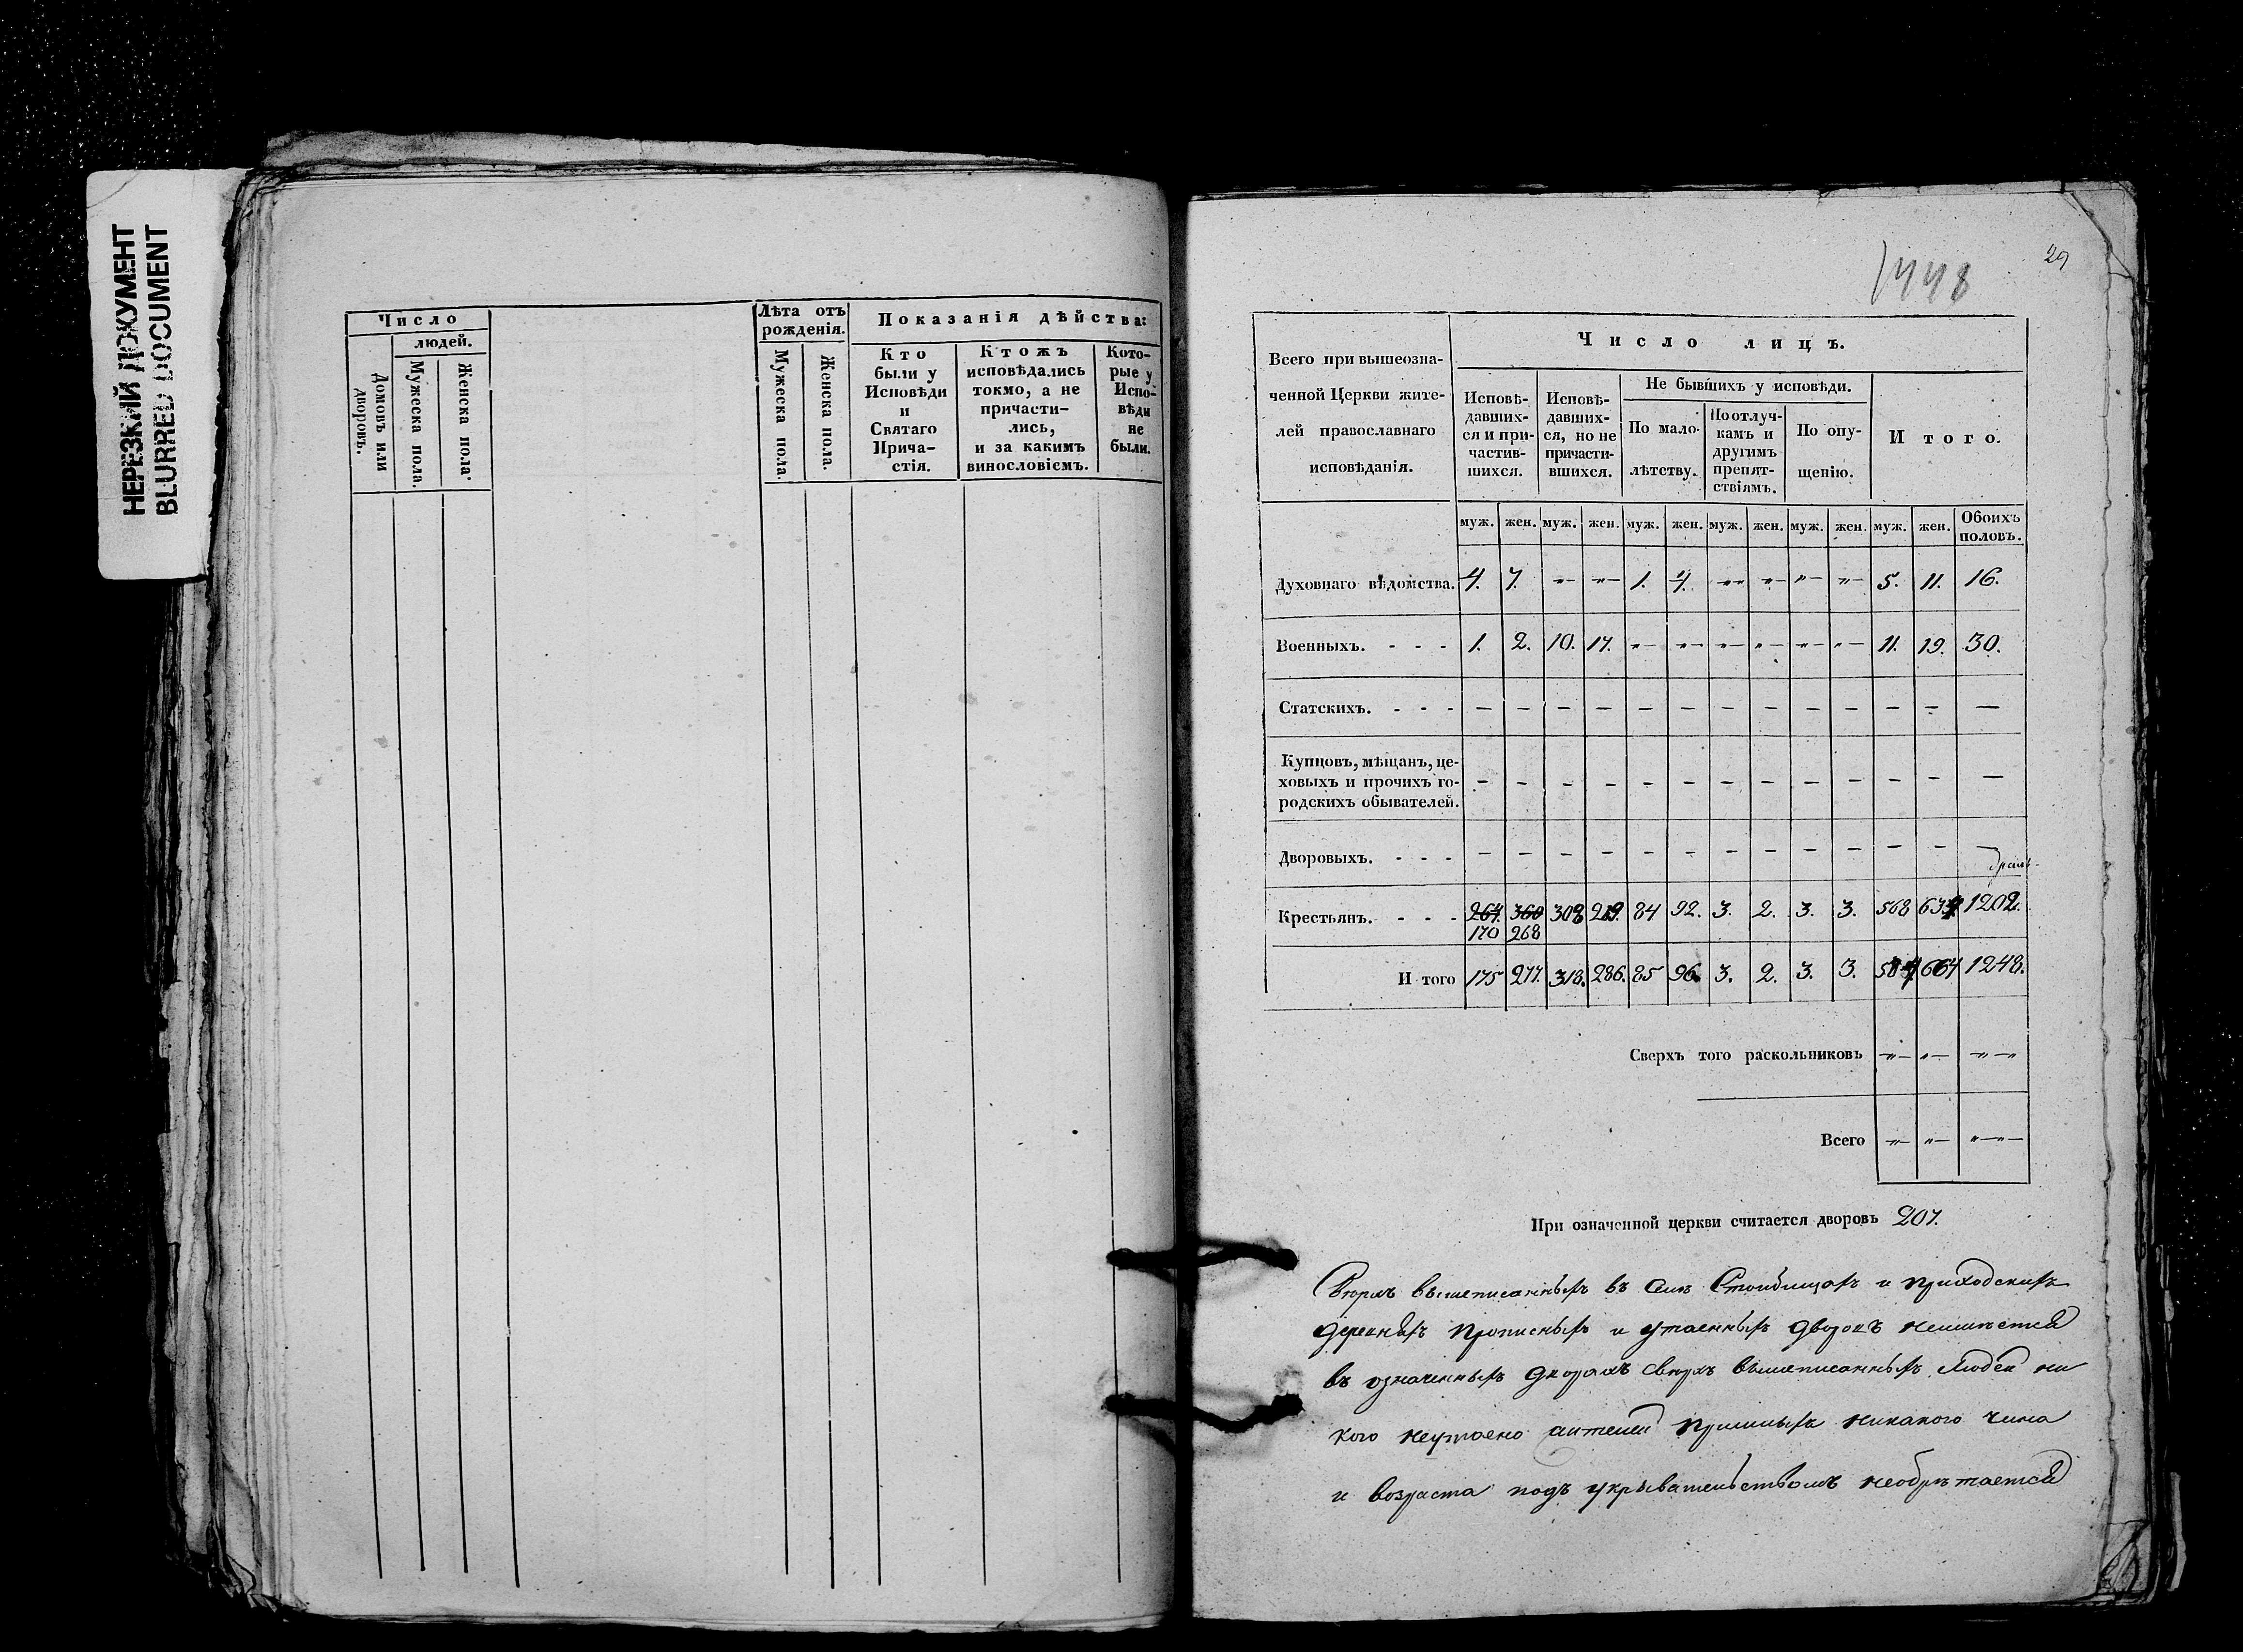 НЕРЕЗКИЙ ДОКУМЕНТ
BLURRED DOCUMENT
Число
людей.
Домовъ или дворовъ.
Мужеска пола.
Женска пола.
Лѣта отъ рожденія.
Мужеска пола.
Женска пола.
Показанія дѣйства:
Кто были у Исповѣди и Святаго Прича-стія.
Ктожъ исповѣдались токмо, а не причасти-лись, и за какимъ винословіемъ.
Кото-рые у Испо-вѣди не были.
29
1448
Всего при вышеозна-
ченной Церкви жите-
лей православнаго
исповѣданія.
Число лицъ.
Исповѣ-давших-ся и при-частив-шихся.
Исповѣ-давших-ся, но не причасти-вшихся.
Не бывшихъ у исповѣди.
По мало-лѣтству.
По отлуч-камъ и другимъ препят-ствіямъ.
По опу-щенію.
Итого.
муж. жен. муж. жен. муж. жен. муж. жен. муж. жен. муж. жен. Обоихъ половъ.
Духовнаго вѣдомства. 4. 7. -"- -"- 1. 4. -"- -"- -"- -"- 5. 11. 16.
Военныхъ. - - - 1. 2. 10. 17. -"- -"- -"- -"- -"- -"- 11. 19. 30.
Статскихъ. - - - — — — — — — — — — — — — —
Купцовъ, мѣщанъ, це-
ховыхъ и прочихъ го-
родскихъ обывателей. — — — — — — — — — — — — —
Дворовыхъ. - - - — — — — — — — — — — — — —
Крестьянъ. - - - 264. 360 308 269. 84 92. 3. 2. 3. 3. 568 634 1202.
170 268
И того 175 277. 318. 286. 85 96. 3. 2. 3. 3. 584 664 1248.
Сверхъ того раскольниковъ -"- -"- -"-
Всего -"- -"- -"-
При означенной церкви считается дворовъ 207.
Сверхъ вышеписанныхъ въ селѣ Стоибищахъ и приходскихъ
деревняхъ прописныхъ и утаенныхъ дворовъ неимѣется
въ означенныхъ дворахъ сверхъ вышеписанныхъ людей ни
кого неутаено пришлыхъ никакого чина
и возраста подъ укрывательствомъ необрѣтается